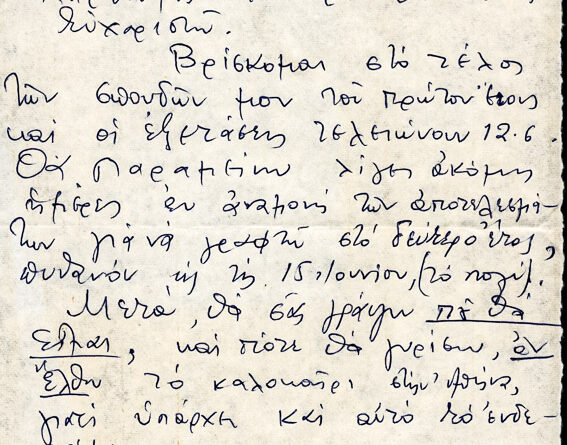 εὐχαριστῶ.
Βρίσκομαι στὸ τέλος
τῶν σπουδῶν μου τοῦ πρώτου ἔτους
καὶ οἱ ἐξετάσεις τελειώνουν 12.6.
Θὰ παραμείνω λίγες ἀκόμη
ἡμέρες ἐν ἀναμονῇ τῶν ἀποτελεσμά-
των γιὰ νὰ γραφτῶ στὸ δεύτερο ἔτος,
πιθανὸν ὡς τὶς 15 Ἰουνίου, (τὸ πολύ).
Μετὰ, θὰ σᾶς γράψω ποῦ θὰ
εἶμαι, καὶ πότε θὰ γυρίσω, ἂν
ἔλθω τὸ καλοκαίρι στὴν Ἀθήνα,
γιατὶ ὑπάρχει καὶ αὐτὸ τὸ ἐνδε-